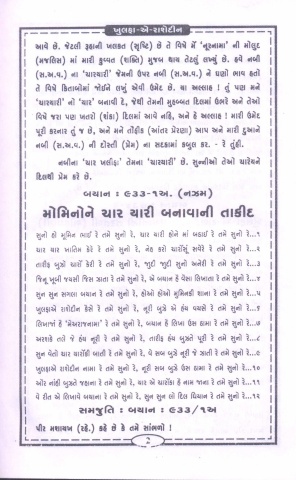 ખુલફા-એ-રાશેદીન
આવે છે. જેટલી રૂહાની ખલકત (સૃષ્ટિ) છે તે વિષે મેં "નૂરનામા" ની મૌલુદ
(મજલિસ) માં મારી કુવ્વત (શક્તિ) મુજબ થાય તેટલું લખ્યું છે. હવે નબી
(સ.અ.વ.) ના 'ચારયારી' જેમની ઉપર નબી (સ.અ.વ.) ને ઘણો ભાવ હતો
તે વિષે કિતાબોમાં જોઈને લખું એવી ઉમેદ છે. યા અલ્લાહ ! તું પણ મને
'ચારયારી' નો 'ચાર' બનાવી દે, જેથી તેમની મુહબ્બત દિલમાં ઉભરે અને તેઓ
વિષે જરા પણ ખતરો (શંકા) દિલમાં આવે નહિ, અને હે અલ્લાહ ! મારી ઉમેદ
પૂરી કરનાર તું જ છે, અને મને તૌફીક (આંતર પ્રેરણા) આપ અને મારી દુઆને
નબી (સ.અ.વ.) ની દોસ્તી (પ્રેમ) ના સદકામાં કબુલ કર. - ર તૂહી.
નબીના 'ચાર ખલીફા' તેમના 'ચારયારી' છે. સુન્નીઓ તેઓ ચારેયને
દિલથી પ્રેમ કરે છે.
બયાન : ૯૩૩-૧અ. (નઝમ)
મોમિનોને ચાર યારી બનાવાની તાકીદ
સુનો હો મુમિન ભાઈ રે તમે સુનો રે, ચાર યારી હોને માં બડાઈ રે તમે સુનો રે...૧
ચાર યાર ખાતિમ કેરે રે તમે સુનો રે, નેહ કરો ચારોંસું સવેરે રે તમે સુનો રે...૨
તારીફ બુઝો ચારોં કેરી રે તમે સુનો રે, જુદી જુદી સુનો અનેરી રે તમે સુનો રે...૩
જિનૂ ખૂબી જયસી જિસ ઝાતા રે તમે સુનો રે, બયાન હે વૈસા લિખાતા રે તમે સુનો રે...૪
સુન સુન સગલા બયાન રે તમે સુનો રે, હોઓ હોઓ મુમિનકી શાના રે તમે સુનો રે...૫
ખુલફાએ રાશેદીન કેસે રે તમે સુનો રે, નૂરી બુઝે એ હંય વયસે રે તમે સુનો રે...૬
લિખાજાં હે 'મેઅરાજનામા' રે તમે સુનો રે, બયાન હે લિખા ઉસ ઠામા રે તમે સુનો રે...૭
અરશકે તલે જે હંય નૂરી રે તમે સુનો રે, તારીફ હંય બહુત પૂરી રે તમે સુનો રે...૮
સુન વેતો ચાર ચારોંકી બાતી રે તમે સુનો રે, વે સબ બુઝે નૂરી જે ઝાતી રે તમે સુનો રે...૯
ખુલફાએ રાશેદીન નામા રે તમે સુનો રે, નૂરી સબ બુઝે ઉસ ઠામા રે તમે સુનો રે...૧૦
ઔર નાંહી બુઝતે જહાના રે તમે સુનો રે, ચાર એ ચારોંકા હે નામ જાના રે તમે સુનો રે...૧૧
વે રીત એ લિખાવે બયાના રે તમે સુનો રે, સુન સુન લો દિલ ધિયાન રે તમે સુનો રે...૧૨
સમજુતિ : બયાન : ૯૩૩/૧અ
પીર મશાયખ (રહ.) કહે છે કે તમે સાંભળો !
2